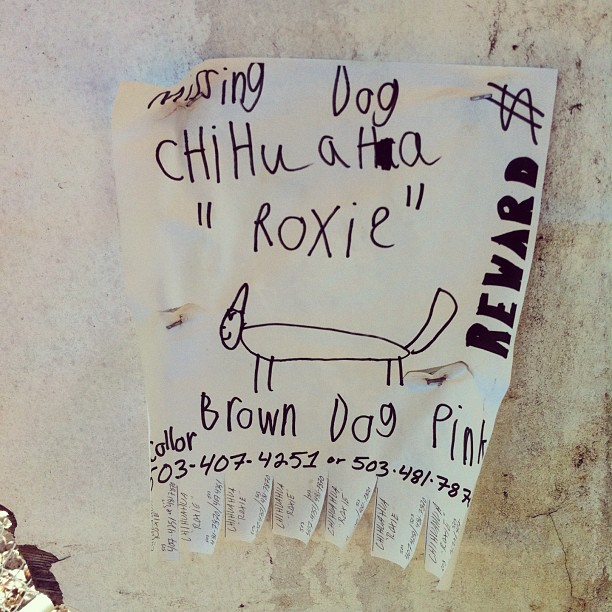 missing Dog
$
CHiHuaHua
" ROXiE "
REWARD
Brown Dog Pink
collor
503-407-4251 or 503-481-787
CHIHUAHUA
ROXIE
CHIHUAHUA
ROXIE
CHIHUAHUA
ROXIE
CHIHUAHUA
ROXIE
CHIHUAHUA
ROXIE
CHIHUAHUA
ROXIE